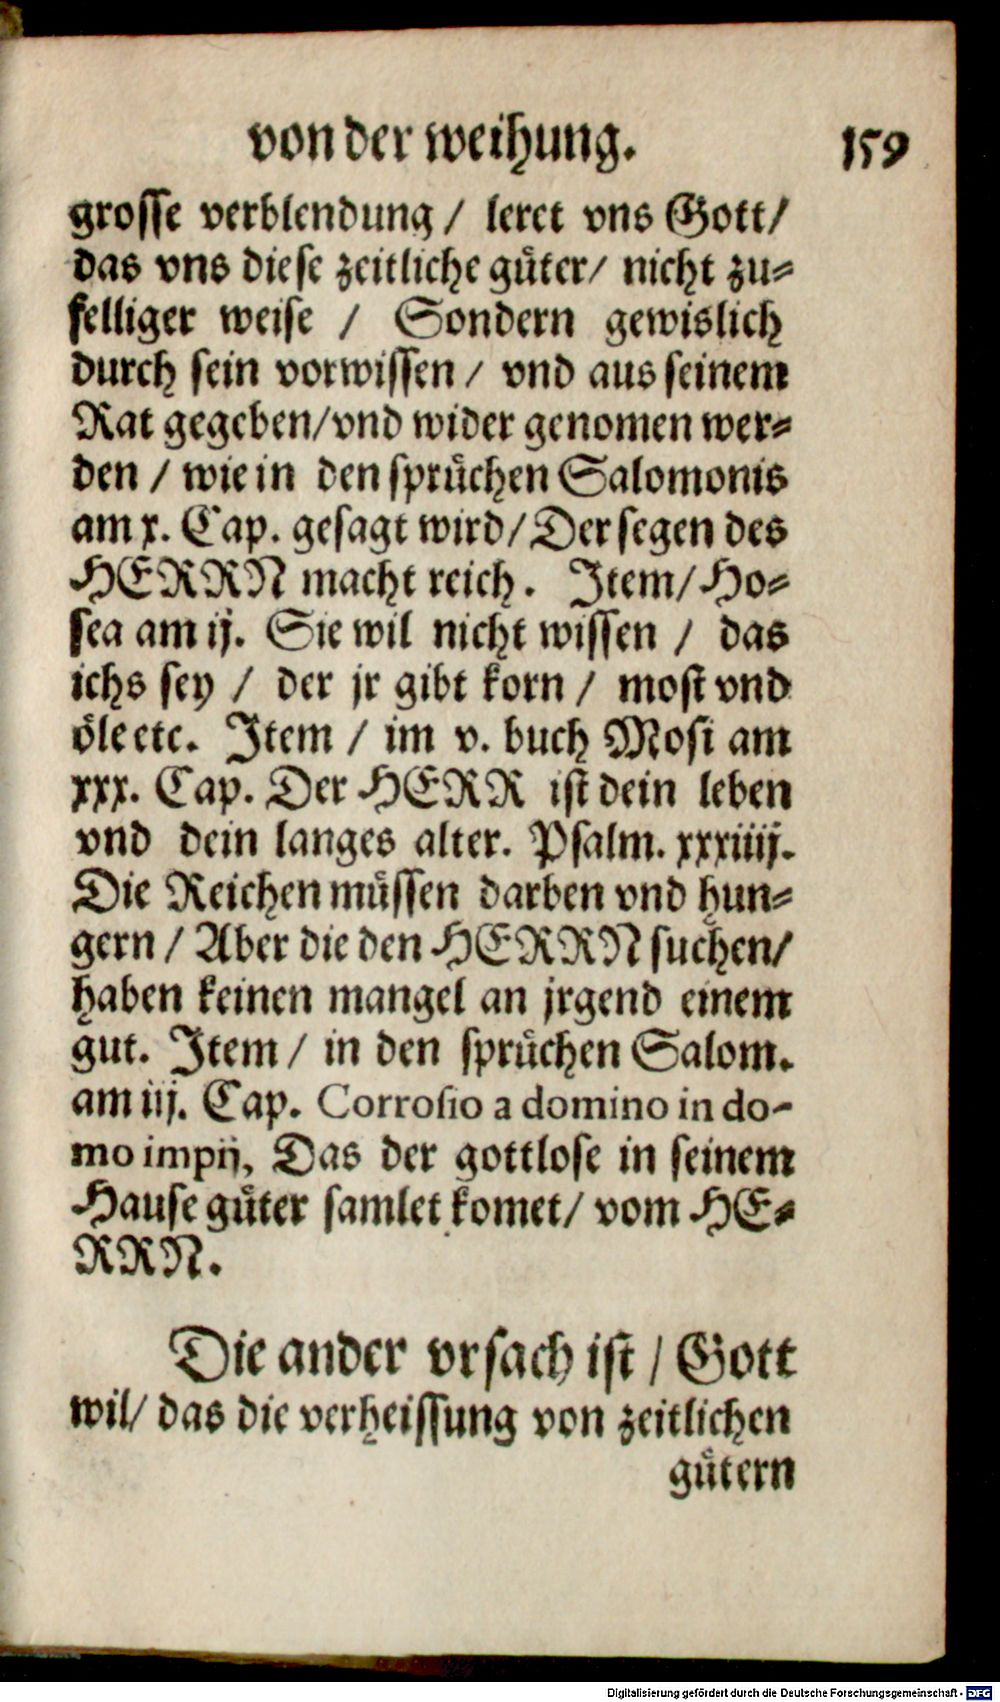 von der weihung. 159
grosse verblendung / leret vns Gott/
das vns diese zeitliche guͤter/ nicht zu⸗
felliger weise / Sondern gewislich
durch sein vorwissen / vnd aus seinem
Rat gegeben/vnd wider genomen wer⸗
den / wie in den spruͤchen Salomonis
am x. Cap. gesagt wird/Der segen des
HERRN macht reich. Item/Ho⸗
sea am ij. Sie wil nicht wissen / das
ichs sey / der jr gibt korn / most vnd
oͤle etc. Item / im v. buch Mosi am
xxx. Cap. Der HERR ist dein leben
vnd dein langes alter. Psalm. xxxiiij.
Die Reichen muͤssen darben vnd hun⸗
gern / Aber die den HERRN suchen/
haben keinen mangel an jrgend einem
gut. Item / in den spruͤchen Salom.
am iij. Cap. Corrosio a domino in do-
mo impij, Das der gottlose in seinem
Hause guͤter samlet komet/ vom HE⸗
RRN.
Die ander vrsach ist / Gott
wil/ das die verheissung von zeitlichen
guͤtern
Digitalisierung gefördert durch die Deutsche Forschungsgemeinschaft - DFG